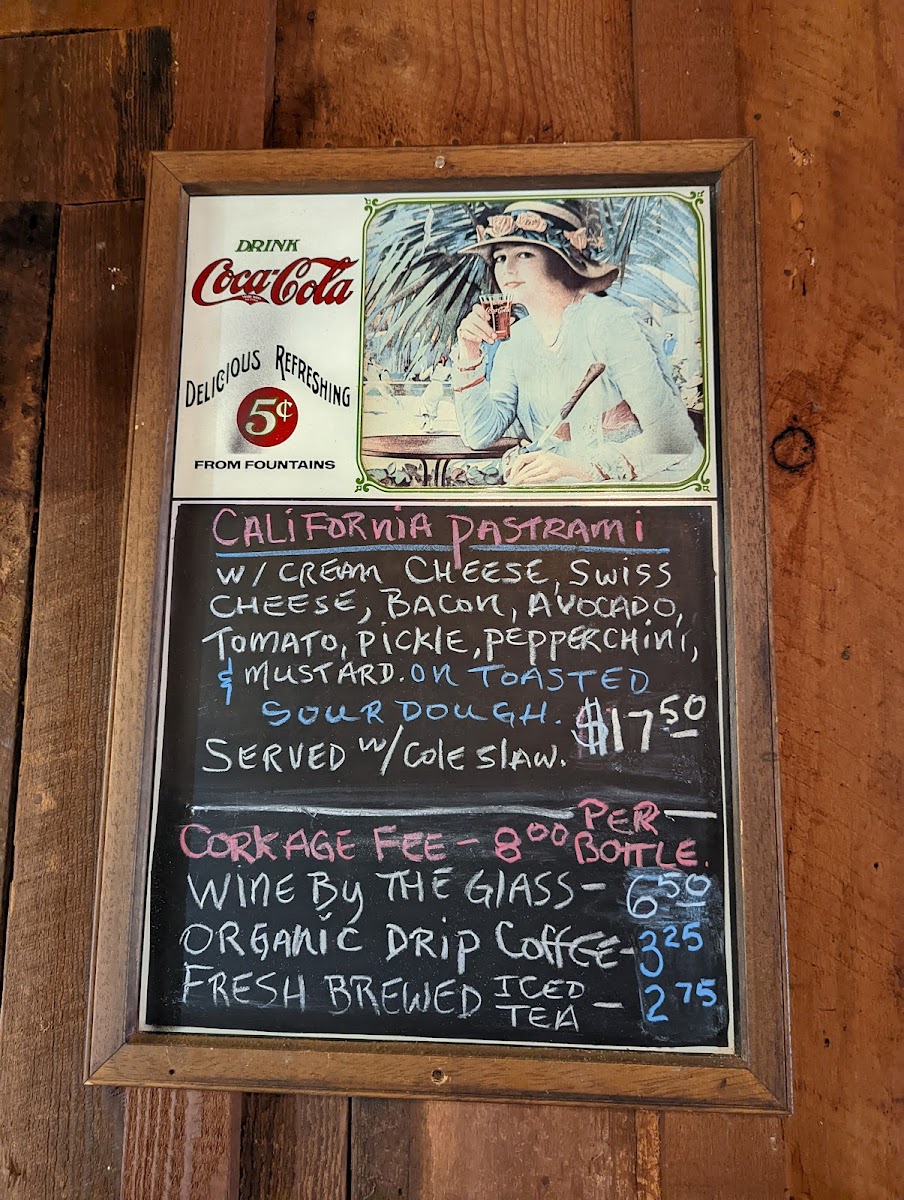 DRINK
Coca-Cola
DELICIOUS REFRESHING
5¢
FROM FOUNTAINS
CALiFORniA PASTRAMi
W/ CREAM CHEESE, SWiSS
CHEESE, BACON, AVOCADO,
TOMATO, PiCKLE, PEPPERCHiNi,
& MUSTARD. ON TOASTED
SOUR DOUGH. $17.50
SERVED W/ Cole SlAW.
CORKAGE FEE - 8.00 PER BOTTLE.
WINE By THE GLASS - 6.50
ORGANiC DRiP CoffEE - 3.25
FRESH BREWED ICED TEA - 2.75